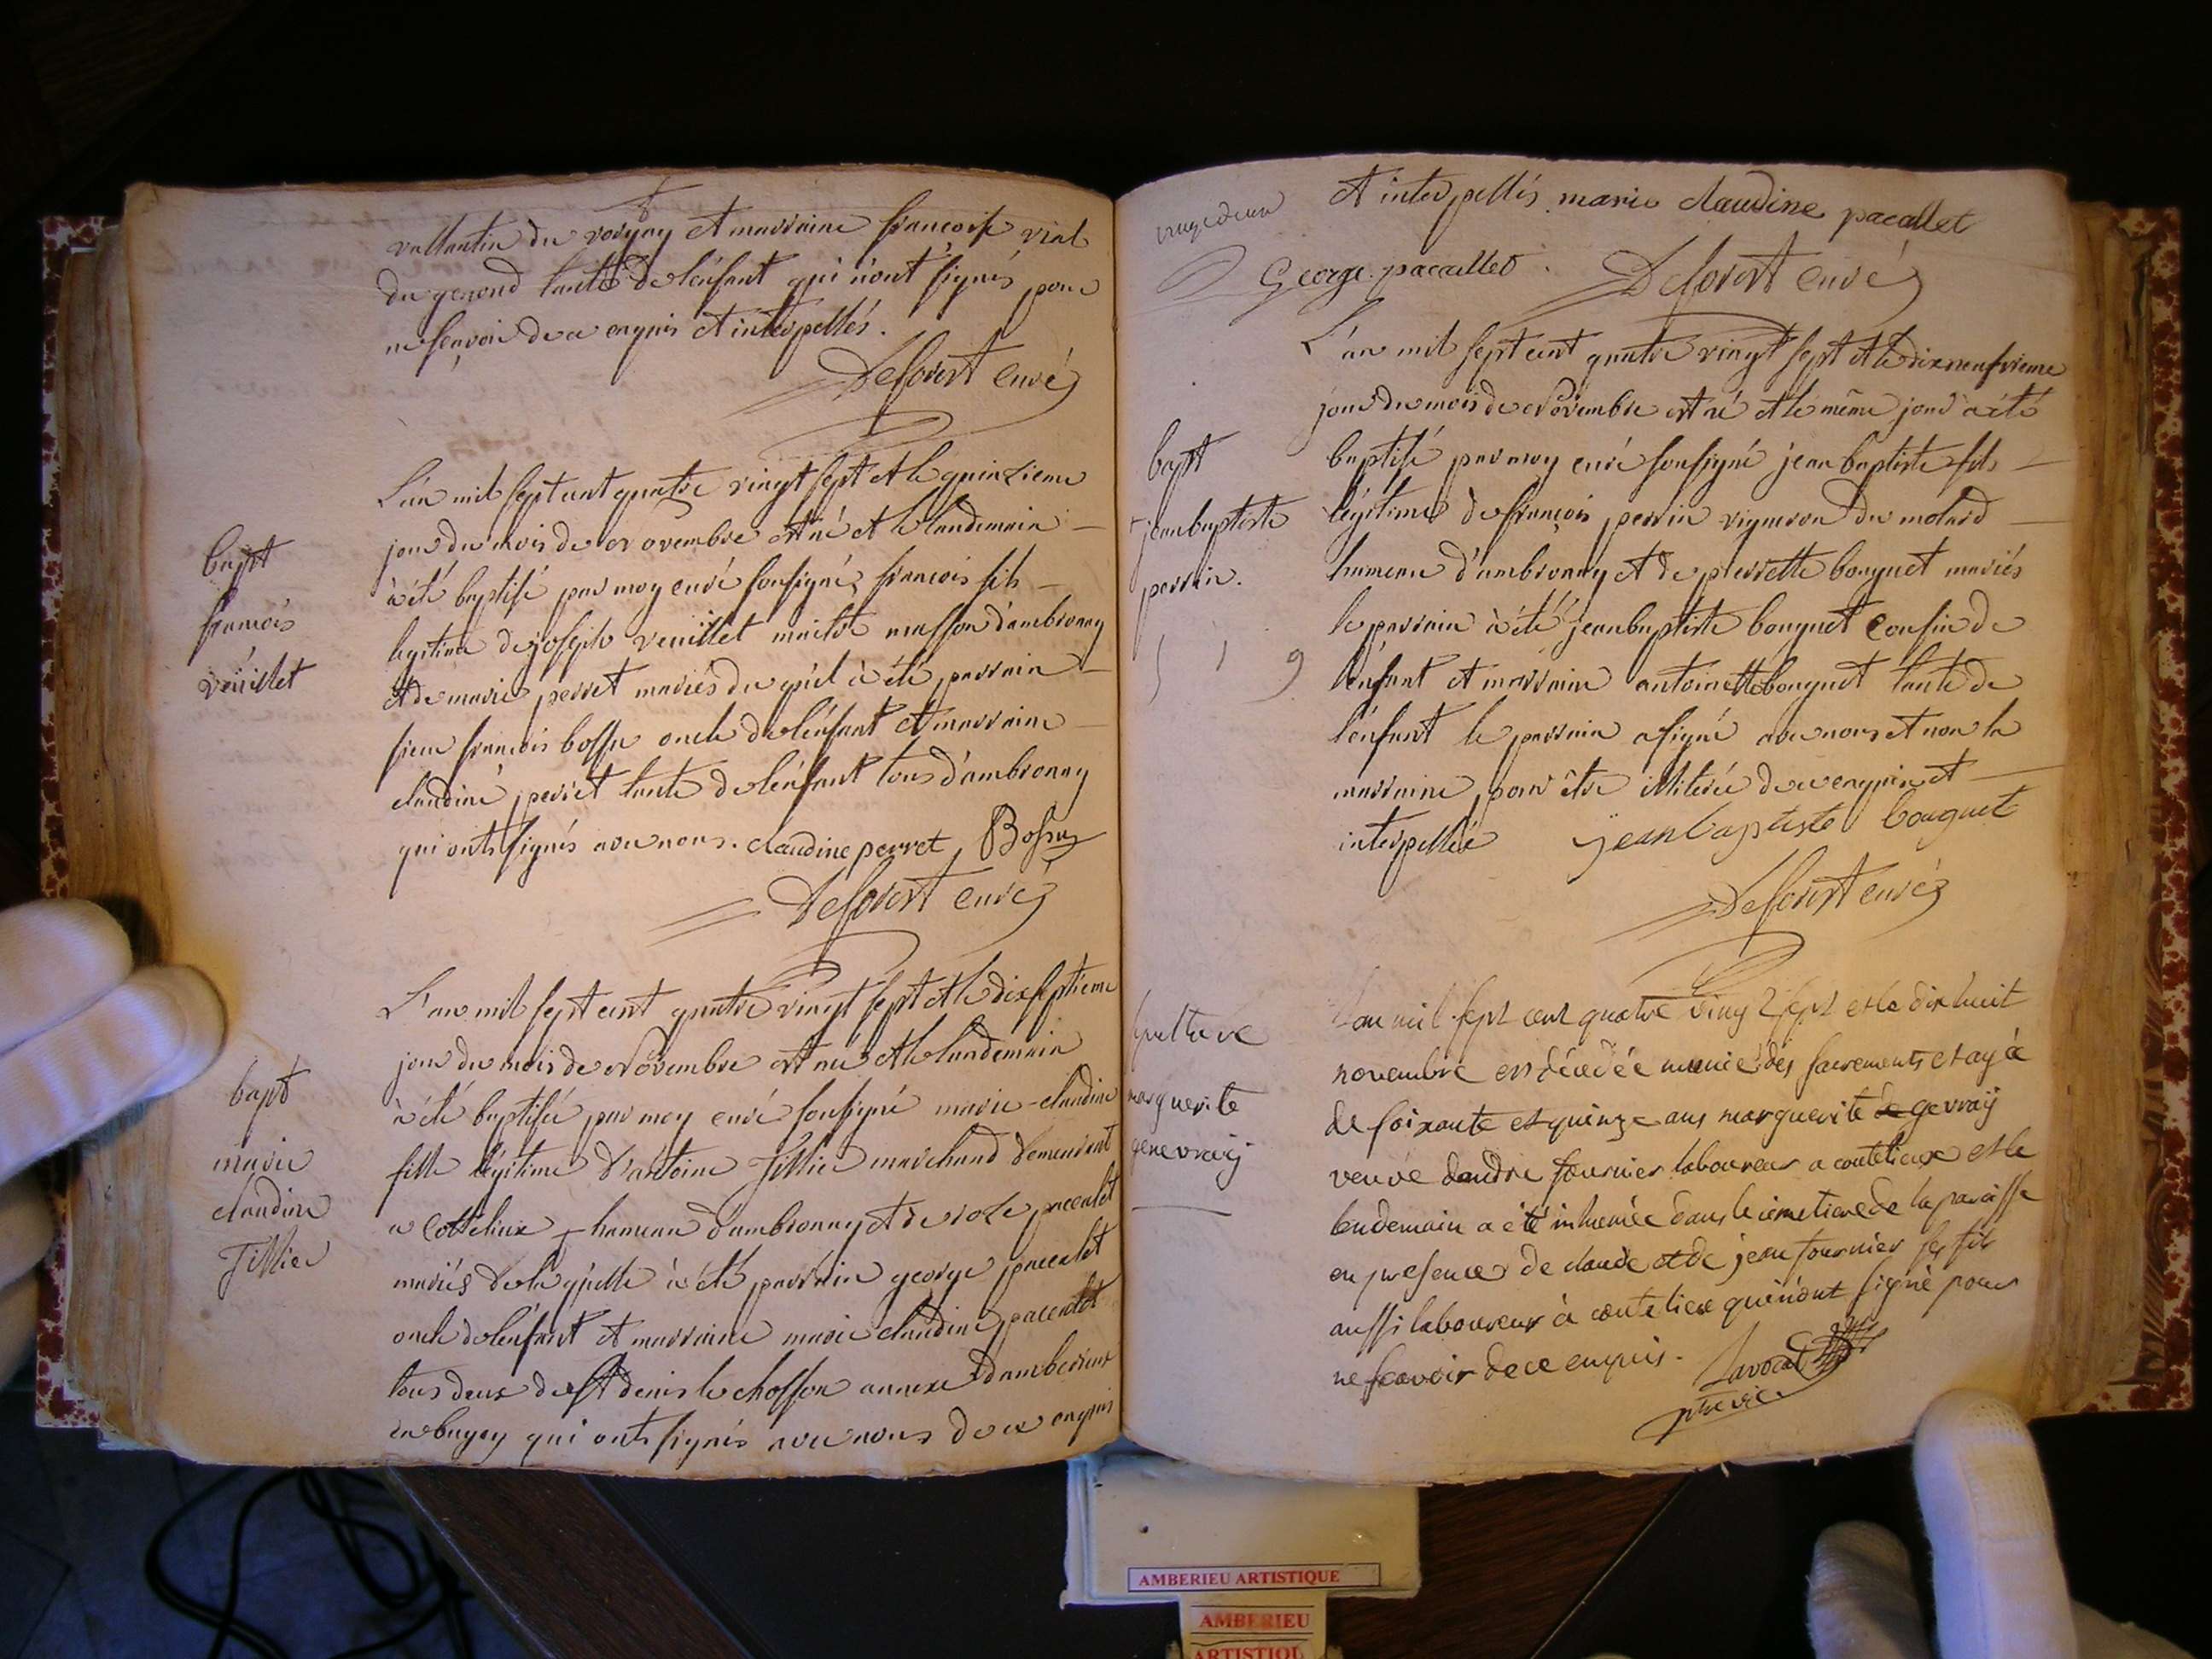 vallantin du vorgay et marraine francoise vial
du genoud tante de lénfant qui n'ont signés pour
ne sçavoir de ce enquis et interpellés.
Deforest curé
L'an mil sept cent quatre vingt sept et le quinzieme
jour du mois de novembre est né et le landemain
à été baptisé par moy curé soussigné françois fils
legitime de joseph veuillet maitre masson d'ambronay
et de marie perret mariés du quel à été parrain
sieur françois bossu oncle de lénfant et marraine
claudine perret tante de lénfant tous d'ambronay
qui ont signés avec nous. claudine perret Bossu
Deforest curé
bapt
francois
véuillet
L'an mil sept cent quatre vingt sept et le dixseptieme
jour du mois de novembre est née et le landemain
à été baptisée par moy curé soussigné marie-claudine
fille légitime d'antoine Tillier marchand demeurant
a Cottelieux hameau d'ambronay et de roze pacalet
mariés de la quelle à été parrain george pacalet
oncle de lénfant et marraine marie claudine pacalet
tous deux de st denis le chosson annexe d'amberieux
en bugey qui ont signés avec nous de ce enquis
bapt
marie
claudine
Tillier
et interpellés. marie claudine pacallet
George pacallet. Deforest curé
L'an mil sept cent quatre vingt sept et le dixneufvieme
jour du mois de novembre est né et le même jour a été
baptisé par moy curé soussigné jean baptiste fils
légitime de françois perrin vigneron du molard
hameau d'ambronay et de pierrette bouquet mariés
le parrain à été jean baptiste bouquet cousin de
lénfant et marraine antoinette bouquet tante de
lénfant le parrain a signé avec nous et non la
marraine pour être illiterée de ce enquise et
interpellée jean baptiste bouquet
Deforest curé
bapt
jean baptiste
perrin.
L'an mil sept cent quatre vingt sept et le dix huit
novembre est décedée munie des sacrements et agée
de soixante et quinze ans marguerite de gevraij
veuve dandre fournier laboureur a coutelieux et le
lendemain a été inhumée dans le cimetiere de la paroisse
en presence de claude et de jean fournier ses fils
aussi laboureur à coutelieux qui n'ont signé pour
ne scavoir de ce enquis. Lavocat
ptre vic.
sepulture
marguerite
genevraij
AMBERIEU ARTISTIQUE
AMBERIEU